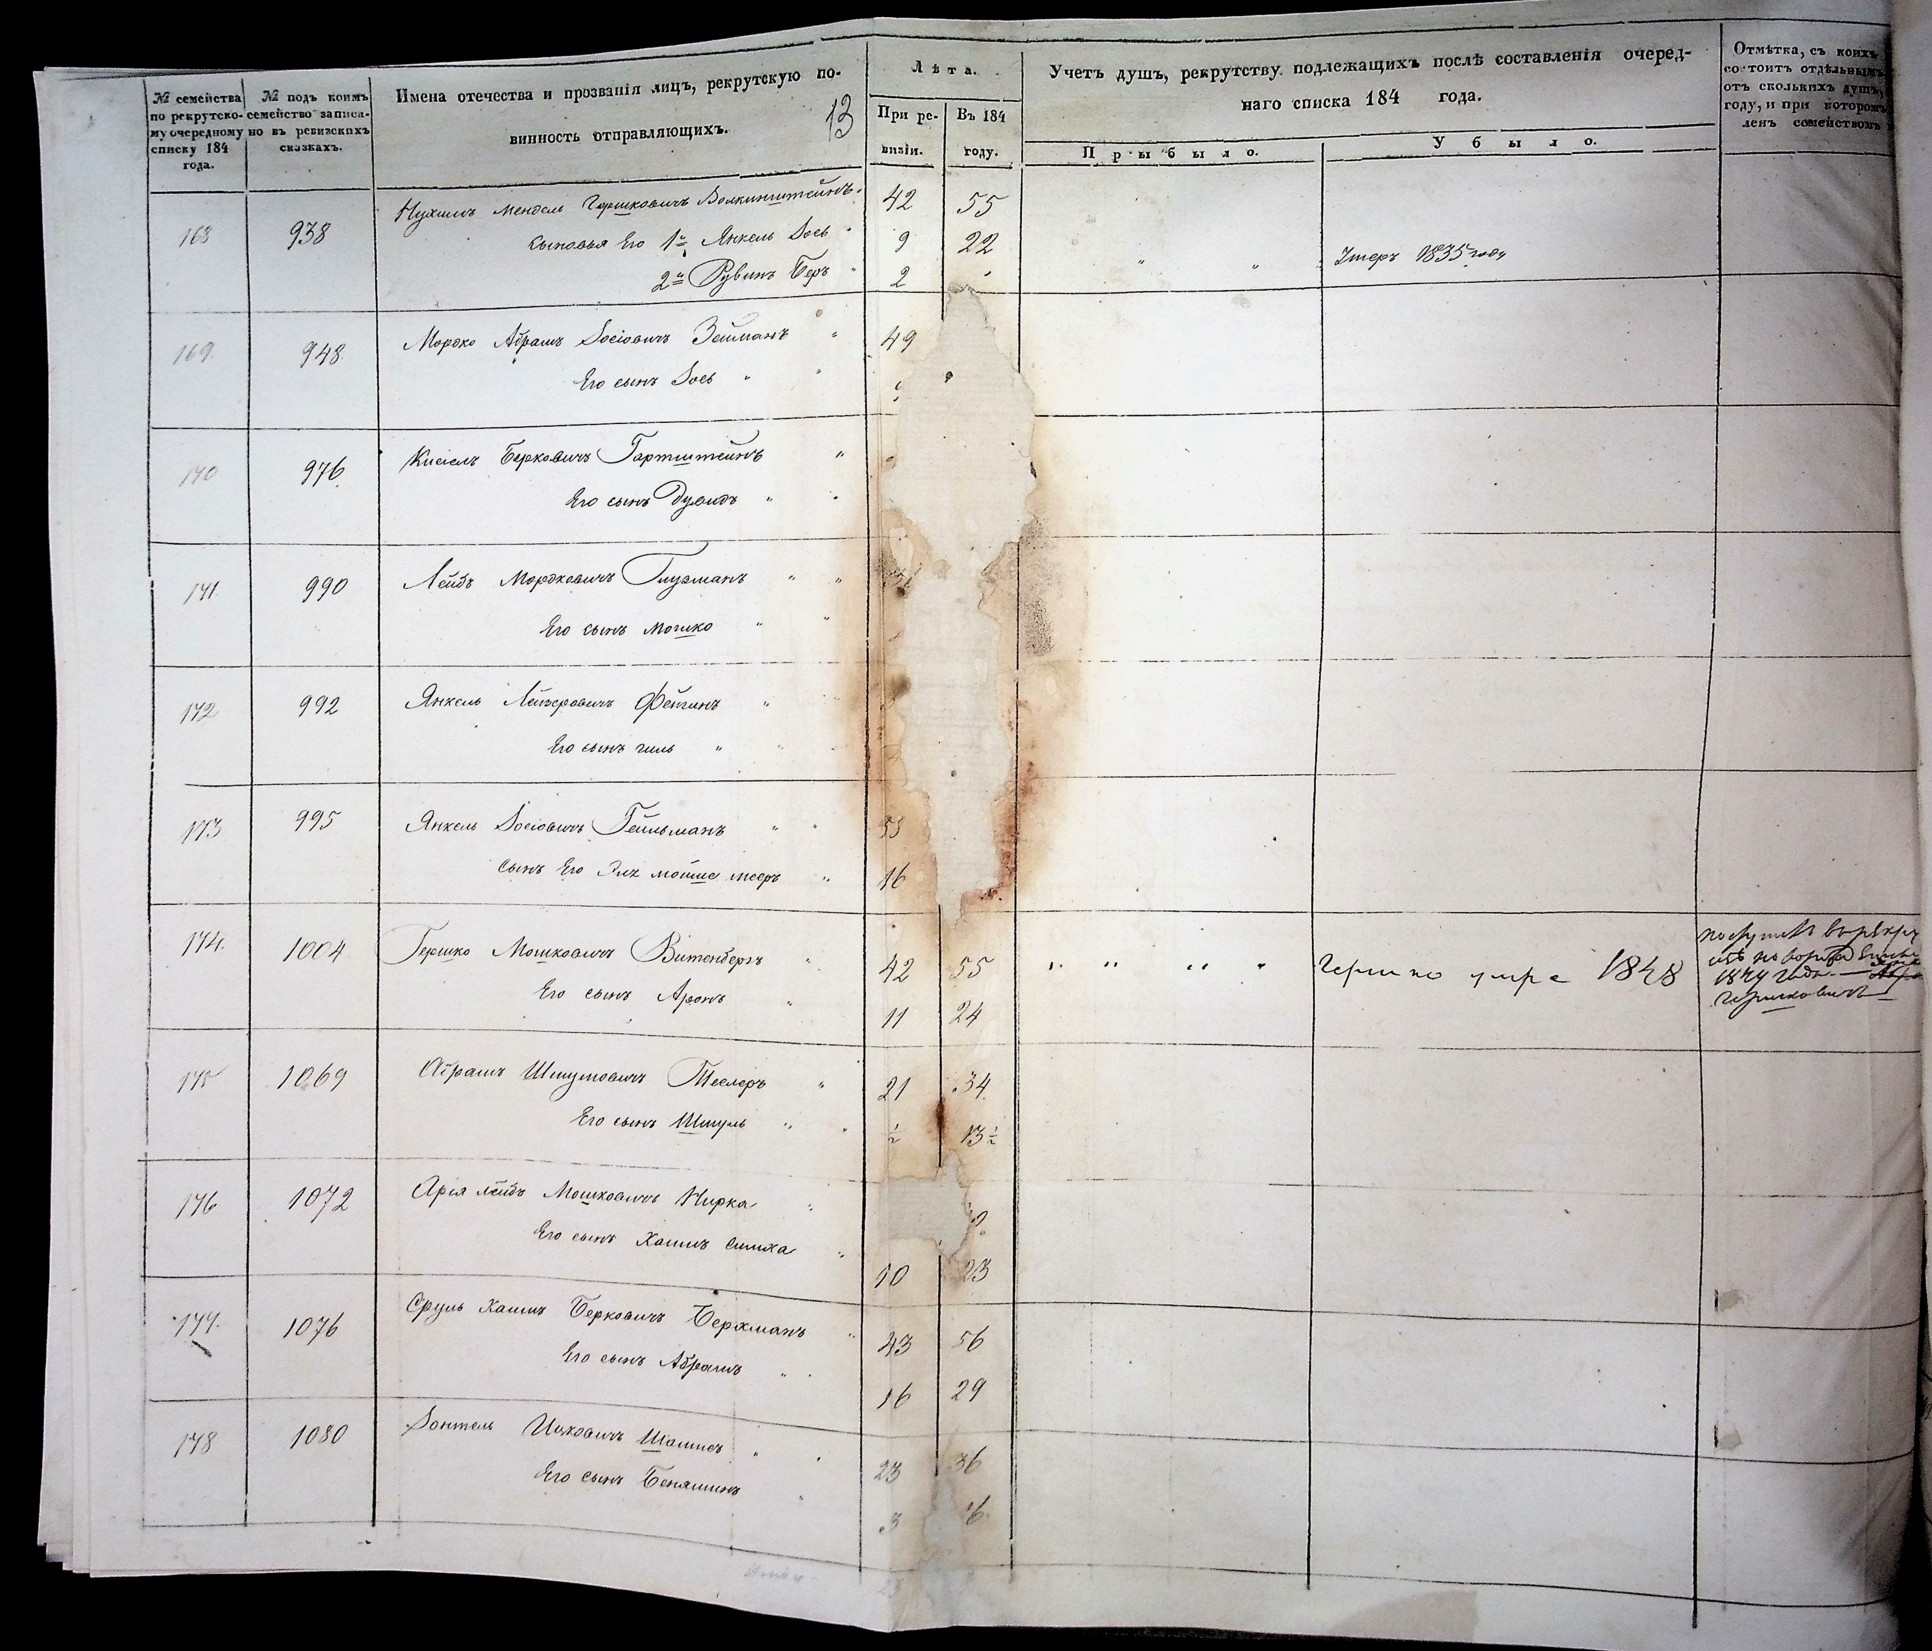 № семейства по рекрутскому очередному списку 184 года.
№ подъ коимъ семейство записано въ ревизскихъ сказкахъ.
Имена отечества и прозванія лицъ, рекрутскую по-
винность отправляющихъ.
13
Лѣта.
При ре-
визіи.
Въ 184
году.
Учетъ душъ, рекрутству подлежащихъ послѣ составленія очеред-
наго списка 184 года.
Прибыло.
Убыло.
Отмѣтка, съ коихъ
состоитъ отдѣльнымъ
отъ сколькихъ душъ,
году, и при которомъ
ленъ семействомъ
168 938 Нухимъ Мендель Гершковичъ Волкинштейнъ 42 55
Сыновья Его 1й Янкель Іось 9 22
2й Рувинъ Беръ 2 Умеръ 1835 году
169 948 Мордко Абрамъ Іосіовичъ Зейманъ 49
Его сынъ Іось
170 976 Кисіель Берковичъ Гартштейнъ
Его сынъ Дувидъ
171 990 Лейбъ Мордковичъ Глузманъ
Его сынъ Мошко
172 992 Янкель Лейзеровичъ Фейгинъ
Его сынъ Гиль
173 995 Янкель Іосіовичъ Гейльманъ 53
Сынъ Его мойше мееръ 16
174 1004 Гершко Мошковичъ Витенбергъ 42 55 Гершко умре 1848
Его сынъ Аронъ 11 24
1844 года
Гершковичъ
175 1069 Абрамъ Шмумовичъ Теслеръ 21 34
Его сынъ Шмуль ½ 13½
176 1072 Арія лейбъ Мошковичъ Нирка
Его сынъ Хаимъ Симха 10 23
177 1076 Сруль Хаимъ Берковичъ Берхманъ 43 56
Его сынъ Абрамъ 16 29
178 1080 Зонтель Ицковичъ 23 36
Его сынъ Беняминъ 3 16